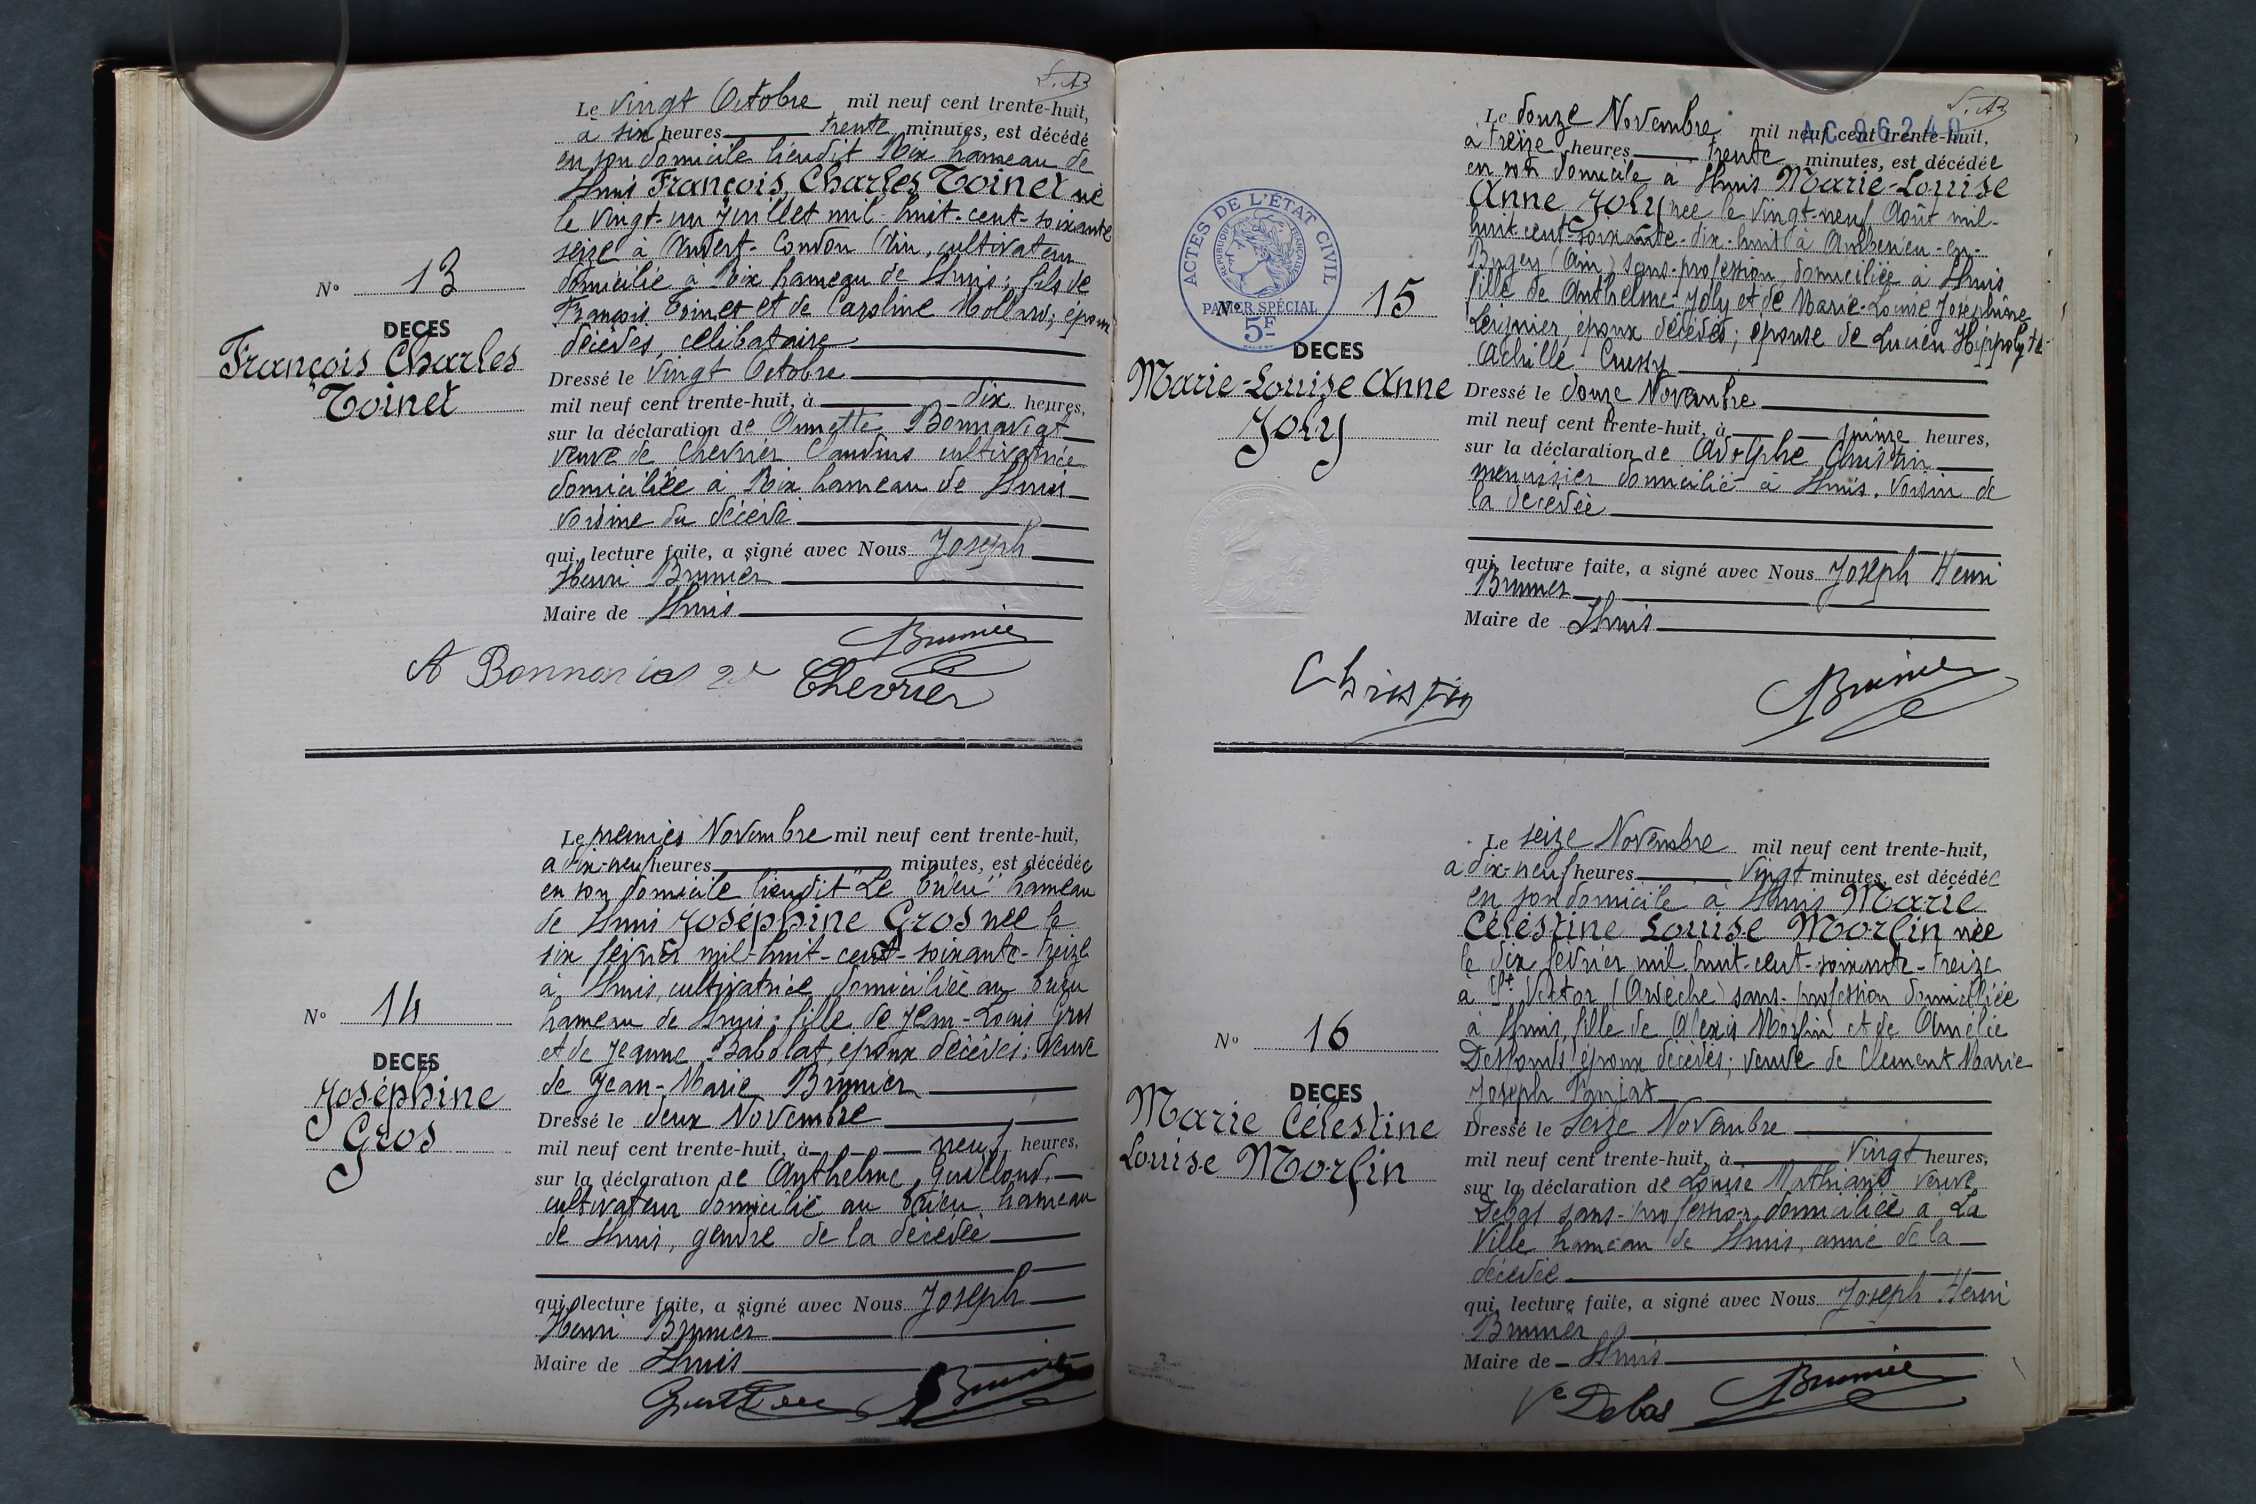 Le vingt Octobre mil neuf cent trente-huit,
à six heures trente minutes, est décédé
en son domicile lieudit Rix hameau de
Lhuis François Charles Toinet né
le vingt-un Juillet mil-huit-cent-soixante
seize à Andert-Condon Ain, cultivateur
domicilié à Rix hameau de Lhuis; fils de
François Toinet et de Caroline Mollard; époux
décédés, célibataire
Dressé le vingt Octobre
mil neuf cent trente-huit, à dix heures,
sur la déclaration de Annette Bonnaviat
veuve de Chevrier Claudius cultivatrice
domiciliée à Rix hameau de Lhuis
voisine du décédé
qui, lecture faite, a signé avec Nous Joseph
Henri Brunier
Maire de Lhuis
Nº 13
DECES
François Charles
Toinet
Brunier
A Bonnavias Chevrier
Le premier Novembre mil neuf cent trente-huit,
a dix-neuf heures minutes, est décédée
en son domicile lieudit "Le Brieu" hameau
de Lhuis Joséphine Gros née le
six février mil-huit-cent-soixante-treize
à Lhuis, cultivatrice domiciliée au Brieu
hameau de Lhuis; fille de Jean-Louis Gros
et de Jeanne Babolat, époux décédés; veuve
de Jean-Marie Brunier
Dressé le deux Novembre
mil neuf cent trente-huit, à neuf heures,
sur la déclaration de Anthelme Guilland,
cultivateur domicilié au Brieu hameau
de Lhuis, gendre de la décédée
qui, lecture faite, a signé avec Nous Joseph
Henri Brunier
Maire de Lhuis
Nº 14
DECES
Joséphine
Gros
Brunier
S.A3
AC 96240
Le douze Novembre mil neuf cent trente-huit,
à treize heures trente minutes, est décédée
en son domicile à Lhuis Marie-Louise
Anne Joly née le vingt-neuf Août mil-
huit-cent-soixante-dix-huit à Ambérieu-en-
Bugey (Ain) sans-profession, domiciliée à Lhuis
fille de Anthelme Joly et de Marie-Louise Joséphine
époux décédés; épouse de Lucien Hippolyte
Achille Cussy
Dressé le douze Novembre
mil neuf cent trente-huit, à quinze heures,
sur la déclaration de Adolphe Christin
menuisier domicilié à Lhuis, voisin de
la décédée
qui, lecture faite, a signé avec Nous Joseph Henri
Brunier
Maire de Lhuis
ACTES DE L'ÉTAT CIVIL
RÉPUBLIQUE FRANÇAISE
PAPIER SPÉCIAL
5F
Nº 15
DECES
Marie-Louise Anne
Joly
Christin Brunier
Le seize Novembre mil neuf cent trente-huit,
a dix-neuf heures vingt minutes, est décédée
en son domicile à Lhuis Marie
Célestine Louise Morfin née
le dix février mil huit-cent-soixante-treize
à St Victor (Ardèche) sans-profession domiciliée
à Lhuis, fille de Alexis Morfin et de Amélie
Desfonds époux décédés; veuve de Clément Marie
Joseph Panjat
Dressé le Seize Novembre
mil neuf cent trente-huit, à vingt heures,
sur la déclaration de Louise Mathiand veuve
Debas sans-profession domiciliée à La
Ville hameau de Lhuis, amie de la
décédée
qui, lecture faite, a signé avec Nous Joseph Henri
Brunier
Maire de Lhuis
Nº 16
DECES
Marie Célestine
Louise Morfin
Ve Debas Brunier